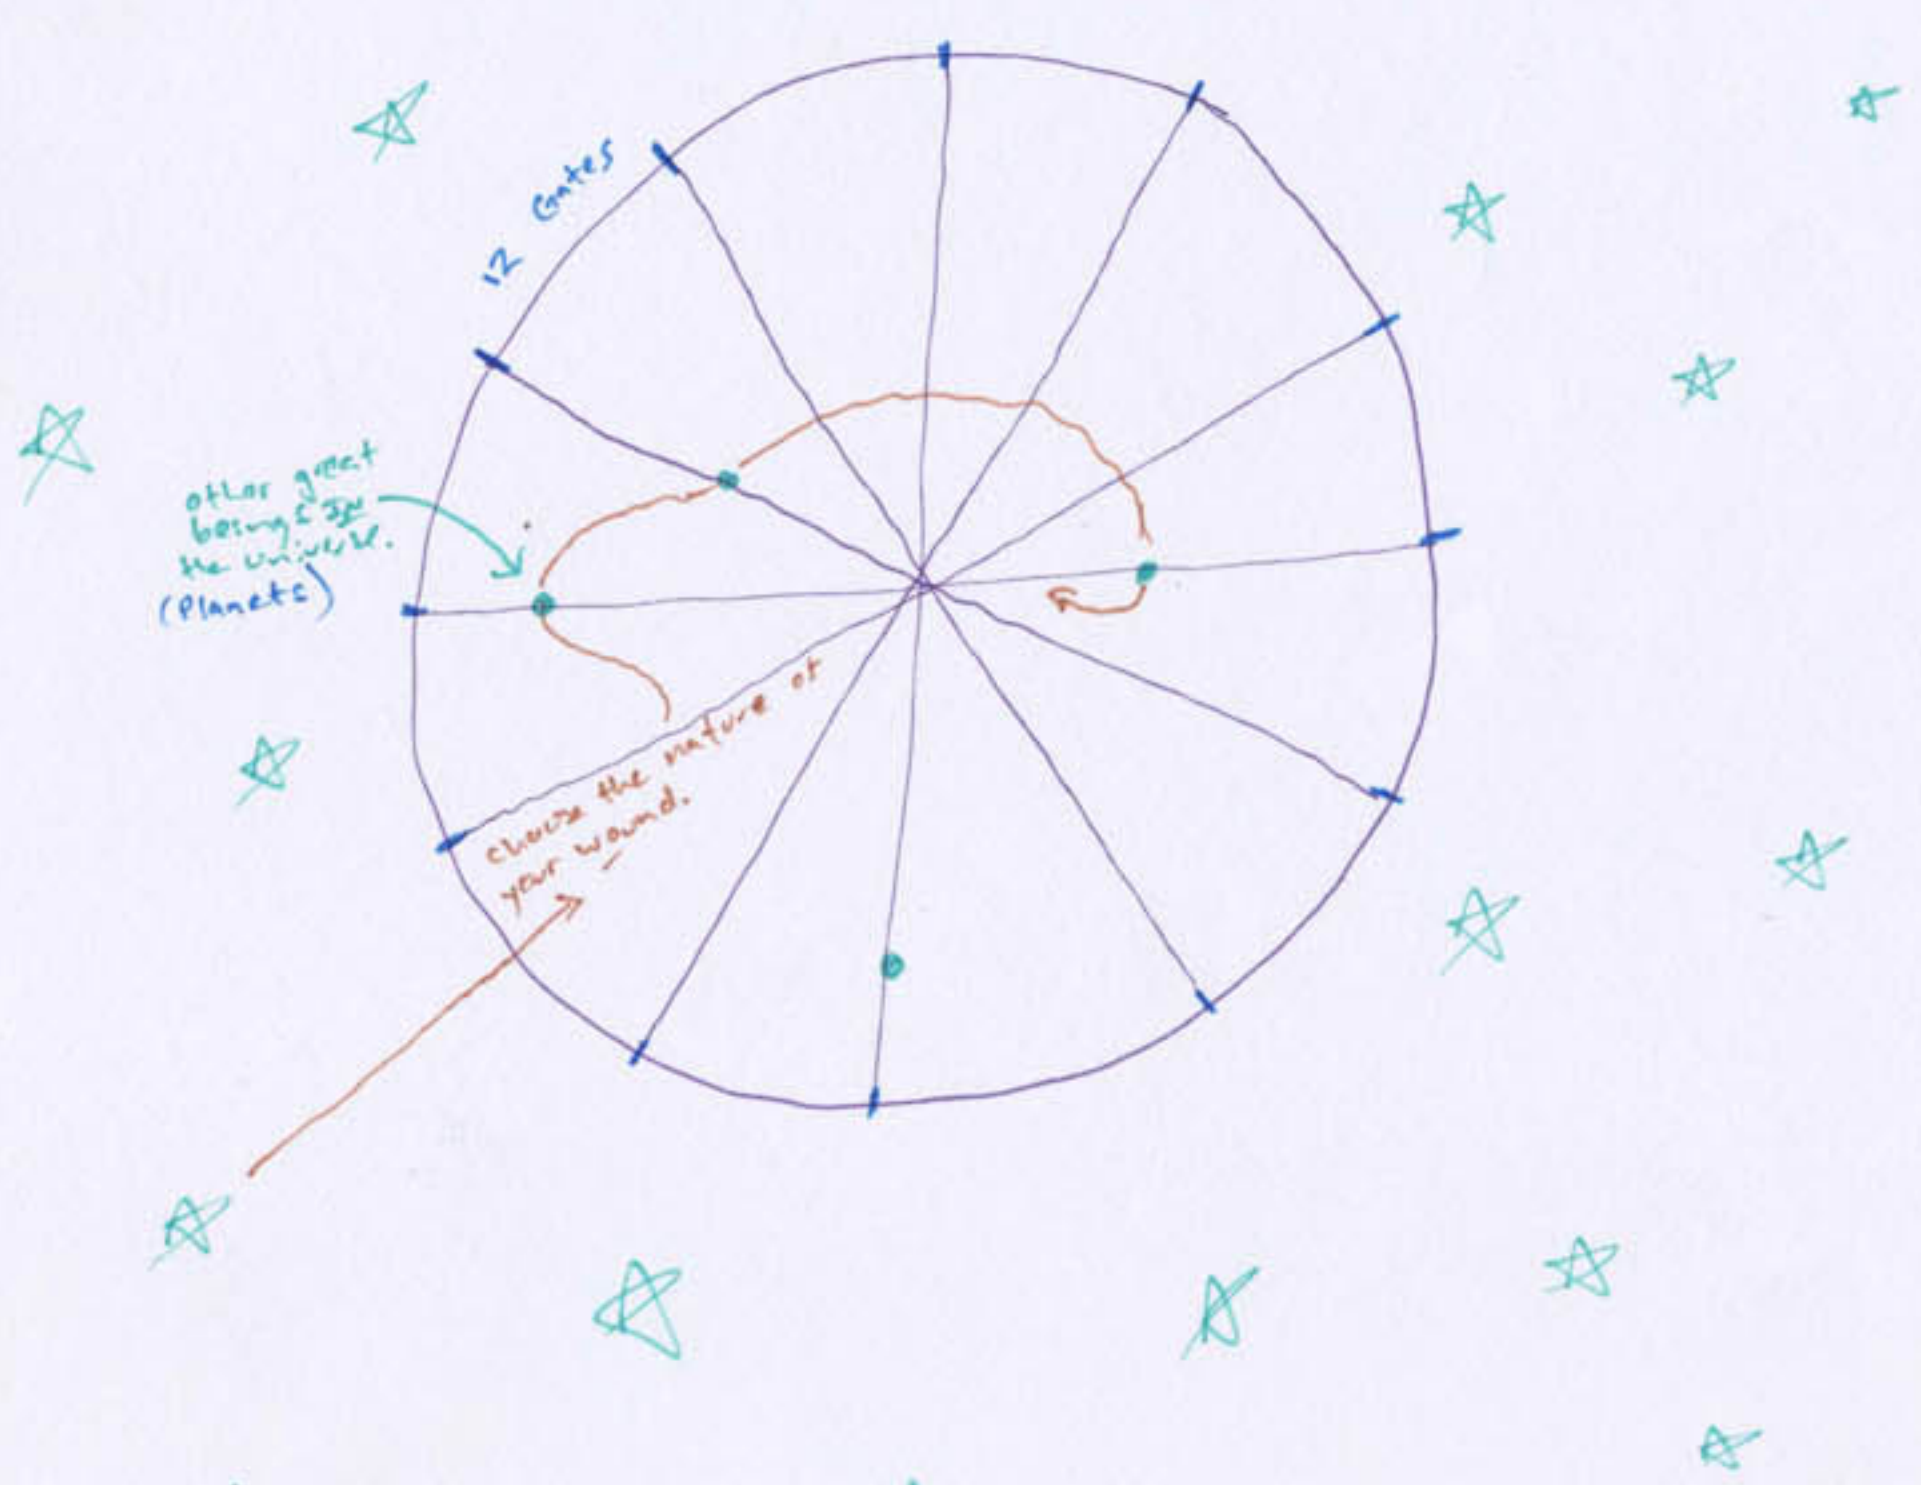 12 Gates
other great
beings IN
the universe.
(Planets)
choose the nature of
your wound.